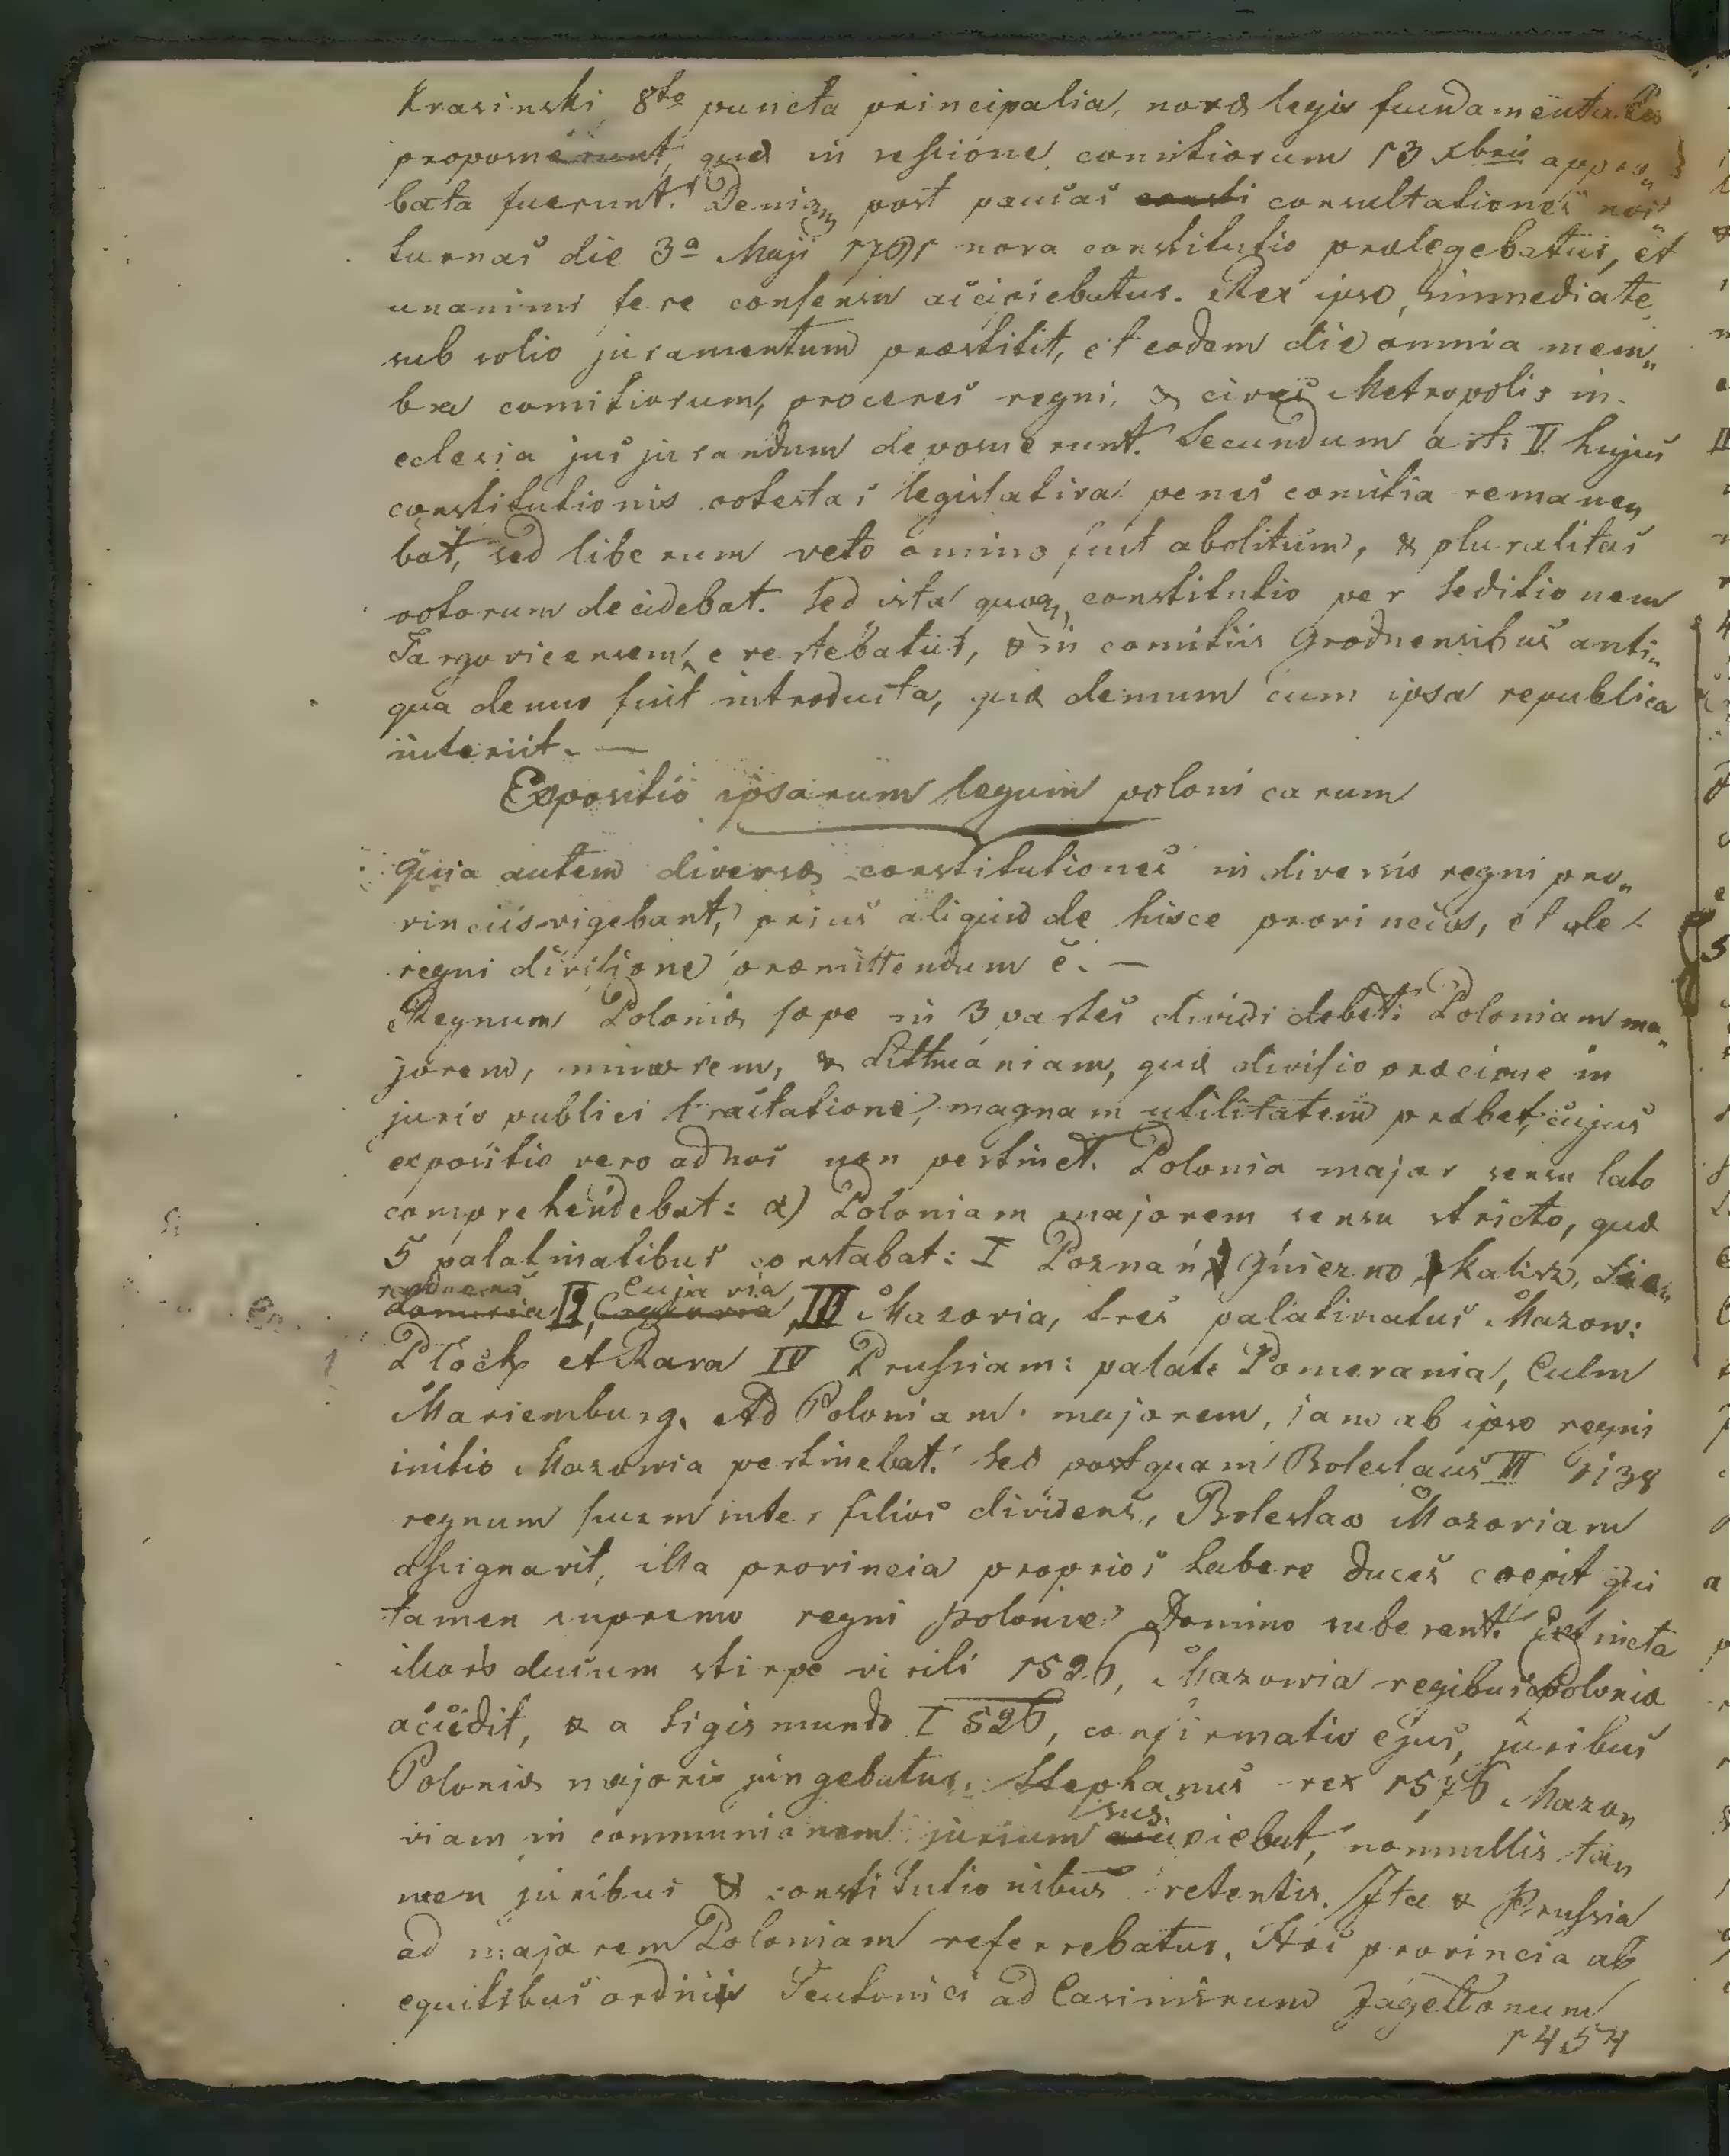 Krasinski 8to puncta principalia, novæ legis fundamentales
proposuerunt, quæ in sessione comitiorum 13 Xbris appro„
bata fuerunt. Deniq, post varias consti consultationes noc„
turnas die 3a Maji 1791 nova constitutio prælegebatur, et
unanimi fere consensu accipiebatur. Rex ipse, immediate
sub solio juramentum præstitit, et eodem die omnia mem„
bra comitiorum, proceres regni, & cives Metropolis in
eclesia jus jurandum deposuerunt. Secundum art: V hujus
constitutionis potestas legislativa penes comitia remane„
bat, sed liberum veto omnino fuit abolitum, & pluralitas
votorum decidebat. Sed ista quoq, constitutio per seditionem
Targovicensem, evertebatur, & in comitiis Grodnensibus anti„
qua denuo fuit introducta, quæ demum cum ipsa republica
interiit. —
Expositio ipsarum legum polonicarum
Quia autem diversæ constitutiones in diversis regni pro„
vinciis vigebant, prius aliquid de hisce provinciis, et de
regni divisione præmittendum ē. —
Regnum Poloniæ sæpe in 3 partes dividi debet: Poloniam ma„
jorem, minorem, & Lithuaniam, quæ divisio præcipue in
juris publici tractatione, magnam utilitatem præbet, cujus
expositio vero ad nos non pertinet. Polonia major sensu lato
comprehendebat: a) Poloniam majorem sensu stricto, quæ
5 palatinatibus constabat: I Poznań, Gniezno, Kalisz, Sie„
radiens Cujavia
II, III Mazovia, tres palatinatus Mazow:
Płock et Rava IV Prussiam: palat: Pomerania, Culm
Mariemburg. Ad Poloniam majorem, jam ab ipso regni
initio Mazowia pertinebat. Sed postquam Boleslaus III 1138
regnum suum inter filios dividens, Boleslao Mazoviam
assignavit, illa provincia proprios habere duces coepit qui
tamen supremo regni poloniæ Domino suberant. Extincta
illorum ducum stirpe virili 1526, Mazowia regibus Poloniæ
accedit, & a Sigismundo I 526, confirmatis ejus, juribus
Poloniæ majoris jungebatur. Stephanus rex 1576 Mazo„
sus
viam in communionem jurium cipiebat, nonnullis ta„
men juribus & constitutionibus retentis. Ita & Prussia
ad majorem Poloniam referrebatur. Hæc provincia ab
equitibus ordinis Teutonici ad Casimirum Jagellonum
1454